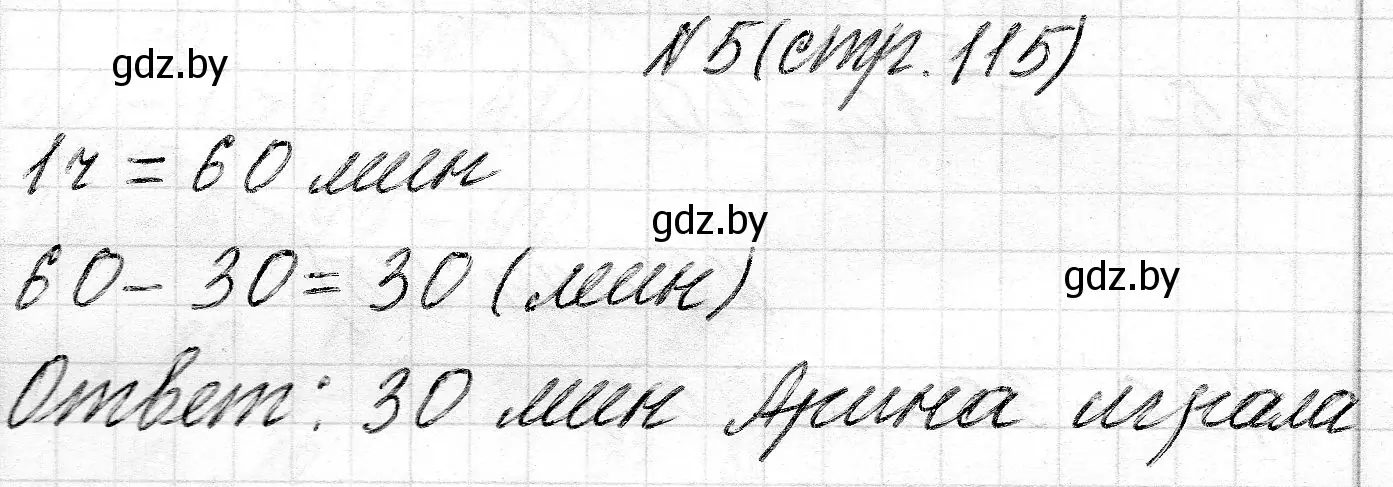 № 5 (стр. 115)
gdz.by
1ч = 60 мин
gdz.by
60 - 30 = 30 (мин)
gdz.by
Ответ: 30 мин Арина играла